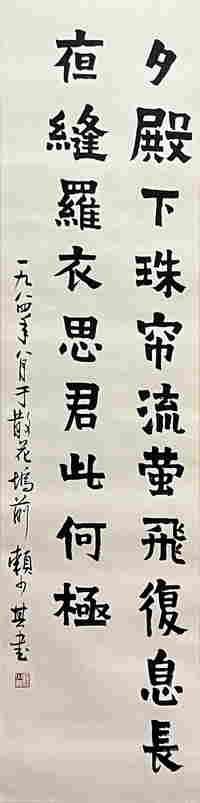 夕殿下珠帘流萤飛復息長
夜縫羅衣思君此何極
一九八四年八月于散花塢前 賴少其書